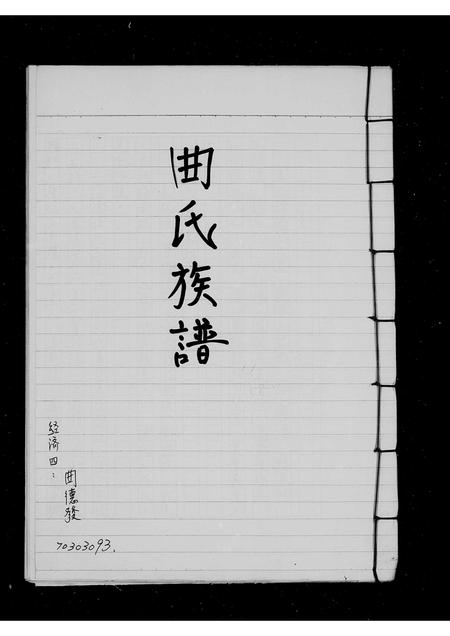 曲氏族譜
经濟四：
曲德發
70303093.